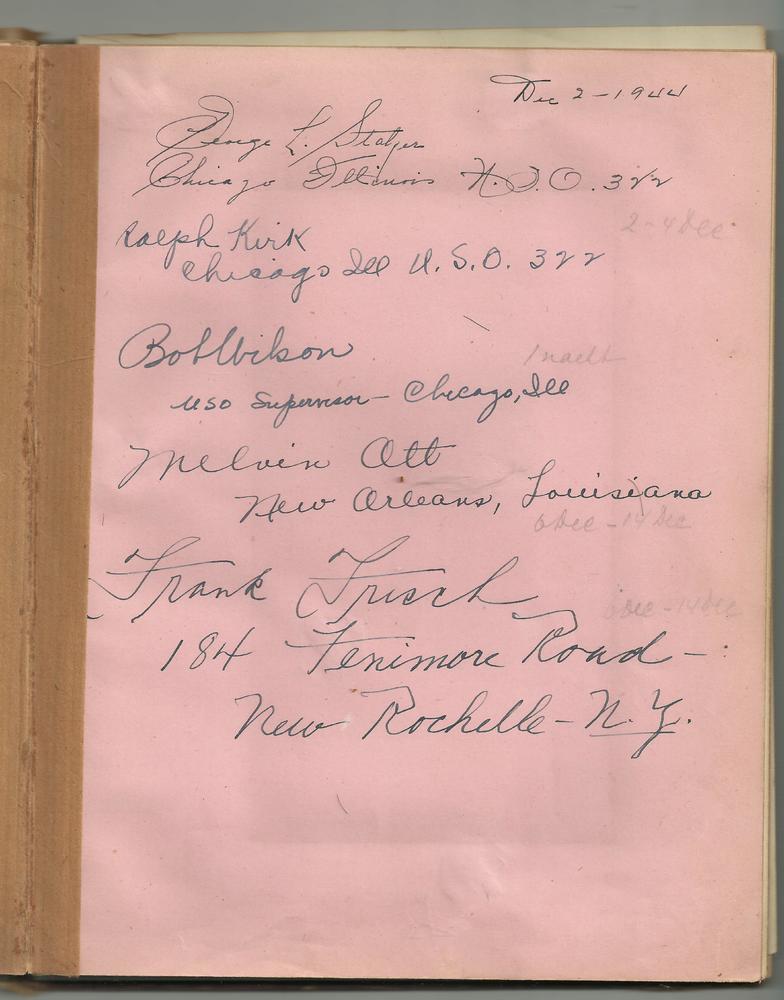 Dec 2 - 1944
George L. Statzer
Chicago Illinois U.S.O. 322
2-4 Dec
Ralph Kirk
Chicago Ill U.S.O. 322
Bob Wilson
USO Supervisor - Chicago, Ill
Melvin Ott
New Orleans, Louisiana
6 Dec - 14 Dec
Frank Frisch
6 Dec - 14 Dec
184 Fenimore Road -
New Rochelle - N.Y.